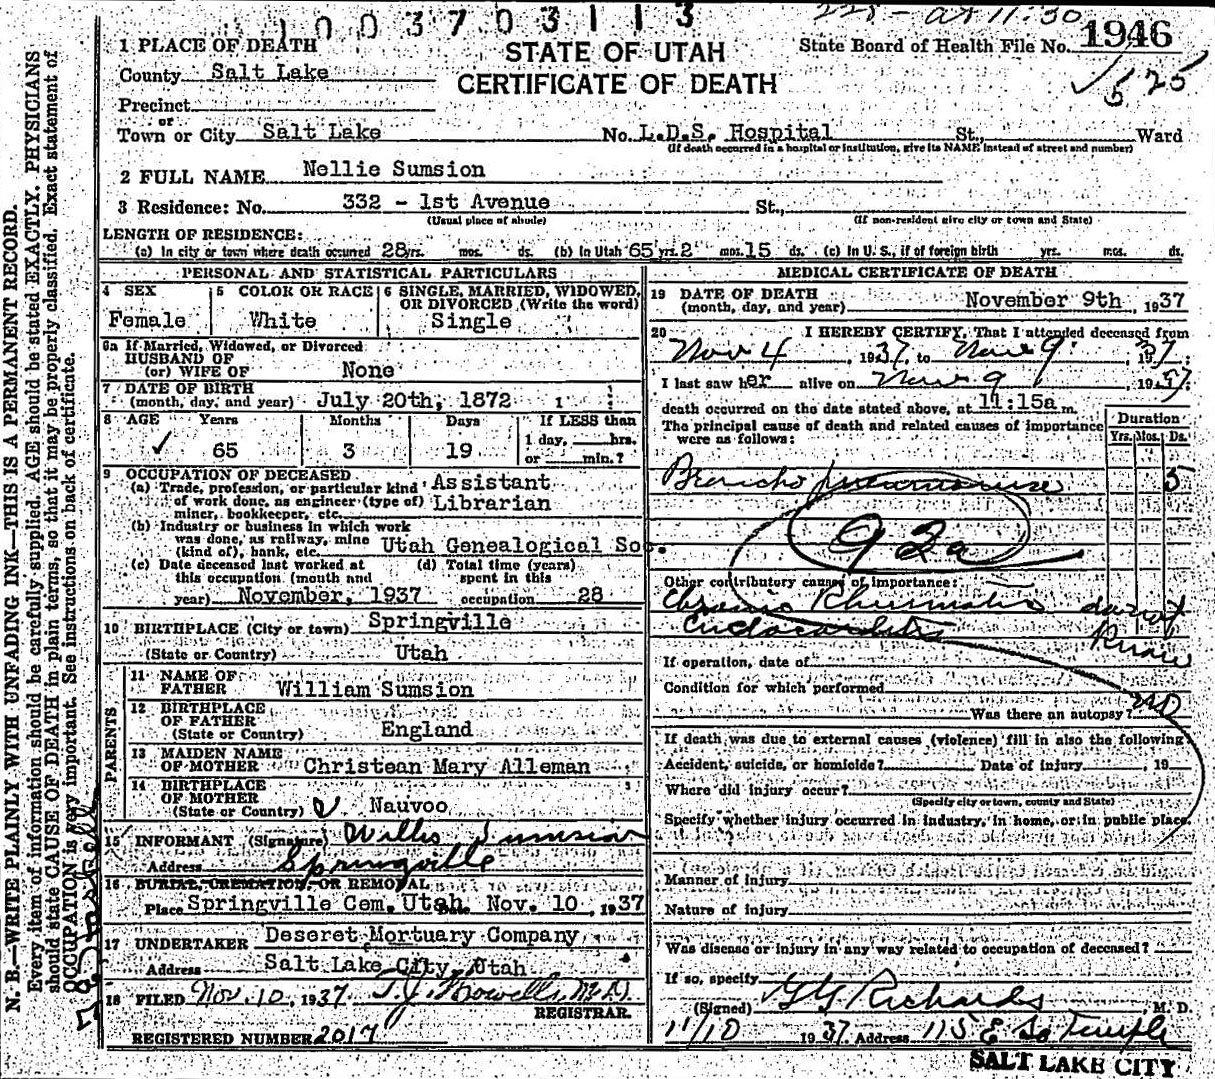 1003703113
228 - at 11:30
STATE OF UTAH
CERTIFICATE OF DEATH
State Board of Health File No. 1946
✓ 525
1 PLACE OF DEATH
County Salt Lake
Precinct
or
Town or City Salt Lake No. L.D.S. Hospital St., Ward
(If death occurred in a hospital or institution, give its NAME instead of street and number)
2 FULL NAME Nellie Sumsion
3 Residence: No. 332 - 1st Avenue St.,
(Usual place of abode) (If non-resident give city or town and State)
LENGTH OF RESIDENCE:
(a) In city or town where death occurred 28 yrs. mos. ds. (b) In Utah 65 yrs. 2 mos. 15 ds. (c) In U. S., if of foreign birth yrs. mos. ds.
PERSONAL AND STATISTICAL PARTICULARS
4 SEX
Female
5 COLOR OR RACE
White
6 SINGLE, MARRIED, WIDOWED,
OR DIVORCED (Write the word)
Single
6a If Married, Widowed, or Divorced
HUSBAND OF
(or) WIFE OF None
7 DATE OF BIRTH
(month, day, and year) July 20th, 1872
8 AGE Years Months Days If LESS than
✓ 65 3 19 1 day, hrs.
or min.?
9 OCCUPATION OF DECEASED
(a) Trade, profession, or particular kind Assistant
of work done, as engineer (type of) Librarian
miner, bookkeeper, etc.
(b) Industry or business in which work
was done, as railway, mine
(kind of), bank, etc. Utah Genealogical So.
(c) Date deceased last worked at (d) Total time (years)
this occupation (month and spent in this
year) November, 1937 occupation 28
10 BIRTHPLACE (City or town) Springville
(State or Country) Utah
PARENTS
11 NAME OF
FATHER William Sumsion
12 BIRTHPLACE
OF FATHER
(State or Country) England
13 MAIDEN NAME
OF MOTHER Christean Mary Alleman
14 BIRTHPLACE
OF MOTHER
(State or Country) Nauvoo
15 INFORMANT (Signature) Willis Sumsion
Address Springville
16 BURIAL, CREMATION, OR REMOVAL
Place Springville Cem. Utah Date Nov. 10, 1937
17 UNDERTAKER Deseret Mortuary Company
Address Salt Lake City, Utah
18 FILED Nov. 10, 1937 T. J. Howells, M.D.
REGISTRAR.
REGISTERED NUMBER 2017
MEDICAL CERTIFICATE OF DEATH
19 DATE OF DEATH
(month, day, and year) November 9th, 1937
20 I HEREBY CERTIFY, That I attended deceased from
Nov 4, 1937, to Nov 9, 1937;
I last saw her alive on Nov 9, 1937;
death occurred on the date stated above, at 11:15a m.
The principal cause of death and related causes of importance
were as follows:
Duration
Yrs. Mos. Ds.
Broncho pneumonia 5
92a
Other contributory causes of importance:
Chronic Rheumatic don't
Endocarditis know
If operation, date of
Condition for which performed
Was there an autopsy? no
If death was due to external causes (violence) fill in also the following
Accident, suicide, or homicide? Date of injury , 19
Where did injury occur?
(Specify city or town, county and State)
Specify whether injury occurred in industry, in home, or in public place.
Manner of injury
Nature of injury
Was disease or injury in any way related to occupation of deceased?
If so, specify
(Signed) G G Richards, M. D.
11/10 1937. Address 115 E So Temple
SALT LAKE CITY
N. B.—WRITE PLAINLY WITH UNFADING INK—THIS IS A PERMANENT RECORD.
Every item of information should be carefully supplied. AGE should be stated EXACTLY. PHYSICIANS
should state CAUSE OF DEATH in plain terms, so that it may be properly classified. Exact statement of
OCCUPATION is very important. See instructions on back of certificate.